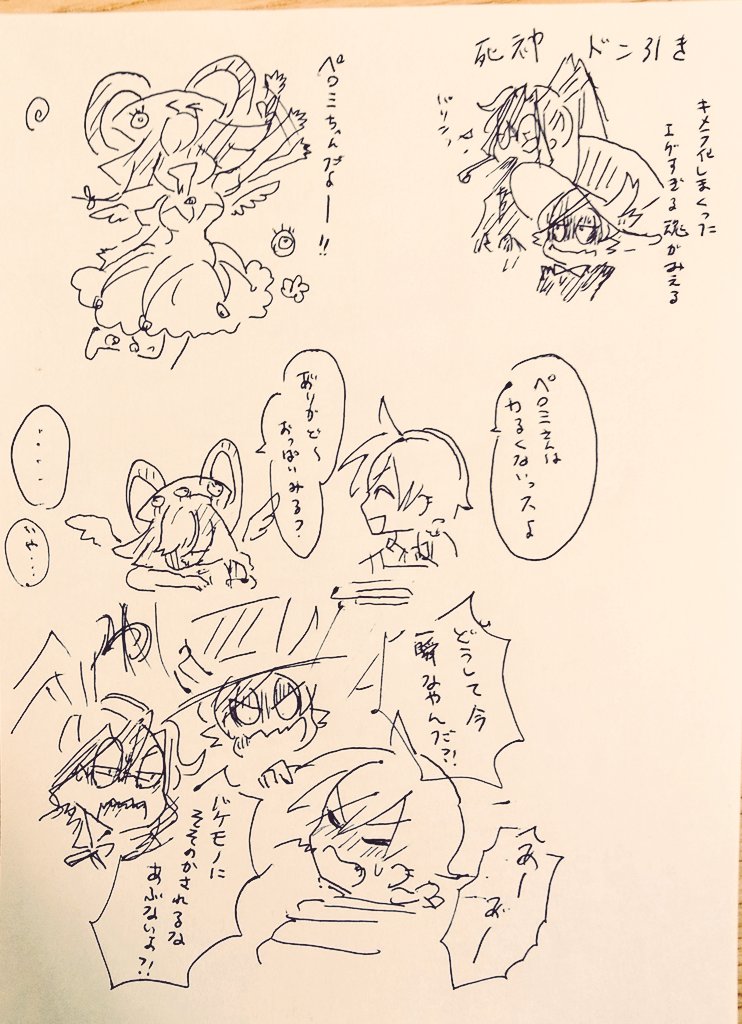 死神 ドン引き
キメラ化しまくった
エグすぎる魂がみえる
バリン
ペロミちゃんだよー!!
ペロミさんは
わるくないっスよ
ありがと〜
おっぱいみる?
・・・・
いや・・・
どうして今
一瞬なやんだ?!
バケモノに
そそのかされるな
あぶないよ?!
あー
あ゛ー